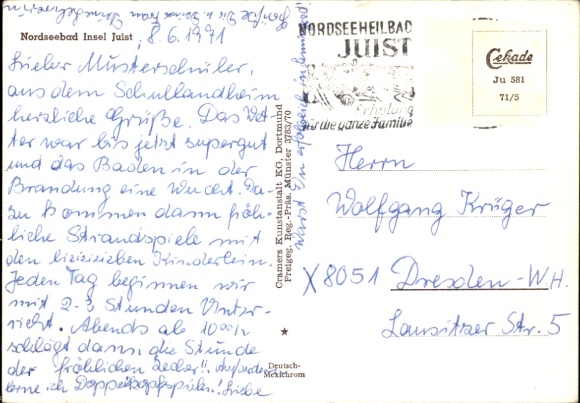 Nordseebad Insel Juist, 8.6.1991
Lieber Musterschüler,
aus dem Schullandheim
herzliche Grüße. Das Wet-
ter war bis jetzt supergut
und das Baden in der
Brandung eine Wucht. Da-
zu kommen dann fröh-
liche Strandspiele mit
den Kinderlein.
Jeden Tag beginnen wir
mit 2-3 Stunden Unter-
richt. Abends ab 10 00 h
schlägt dann die Stunde
der fröhlichen Zecher!! Außerdem
lerne ich Doppelkopfspielen! Liebe
Grüße Dir u. Deine Frau
Warst Du erfolgreich in
Cramers Kunstanstalt KG, Dortmund
Freigeg. Reg.-Präs. Münster 3783/70
Deutsch-
Mexichrom
NORDSEEHEILBAD
JUIST
Erholung
für die ganze Familie
Cekade
Ju 581
71/5
Herrn
Wolfgang Krüger
X 8051 Dresden-W.H.
Lausitzer Str. 5